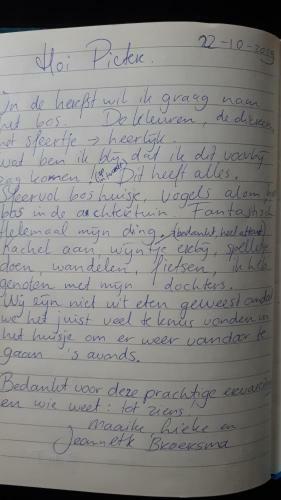 22-10-2019
Hoi Pieter.
In de herfst wil ik graag naar
het bos. De kleuren, de dieren,
het sfeertje → heerlijk.
wat ben ik blij dat ik dit voorbij
zag komen. Dit heeft alles.
Sfeervol boshuisje, vogels alom,
bos in de achtertuin. Fantastisch
Helemaal mijn ding. (bedankt,
Kachel aan, wijntje erbij, spelletje
doen, wandelen, fietsen, ik heb
genoten met mijn dochters.
Wij zijn niet uit eten geweest omdat
we het juist veel te leuk vonden in
het huisje om er weer vandoor te
gaan 's avonds.
Bedankt voor deze prachtige ervaring
en wie weet: tot ziens!
Maaike Lieke en
Jeannette Broersma